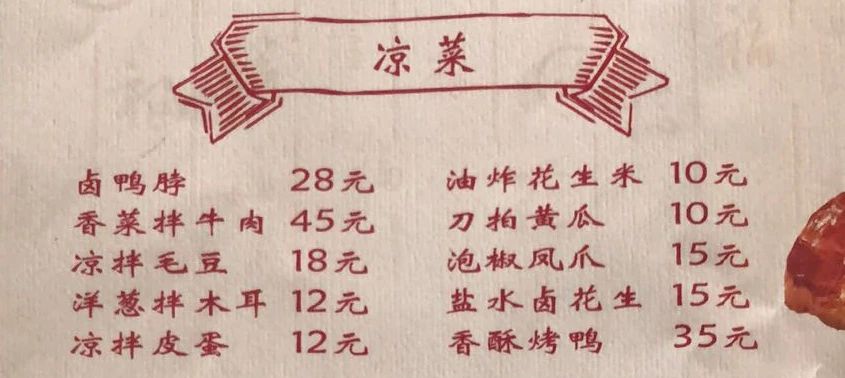 凉菜
卤鸭脖 28元
香菜拌牛肉 45元
凉拌毛豆 18元
洋葱拌木耳 12元
凉拌皮蛋 12元
油炸花生米 10元
刀拍黄瓜 10元
泡椒凤爪 15元
盐水卤花生 15元
香酥烤鸭 35元